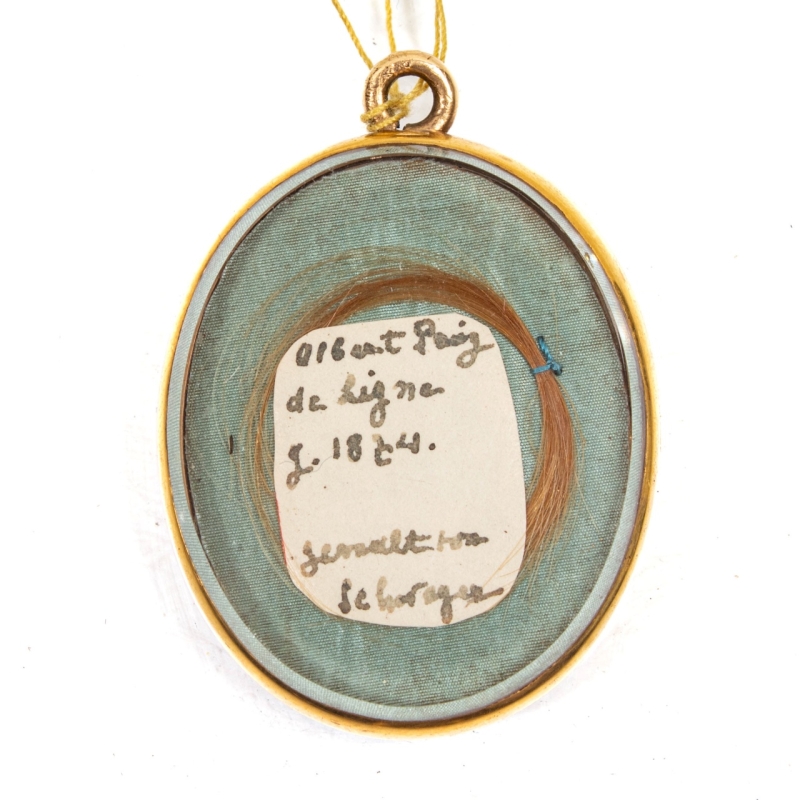 Albert Prinz
de Ligne
g. 1874.
gemalt von
Schwager